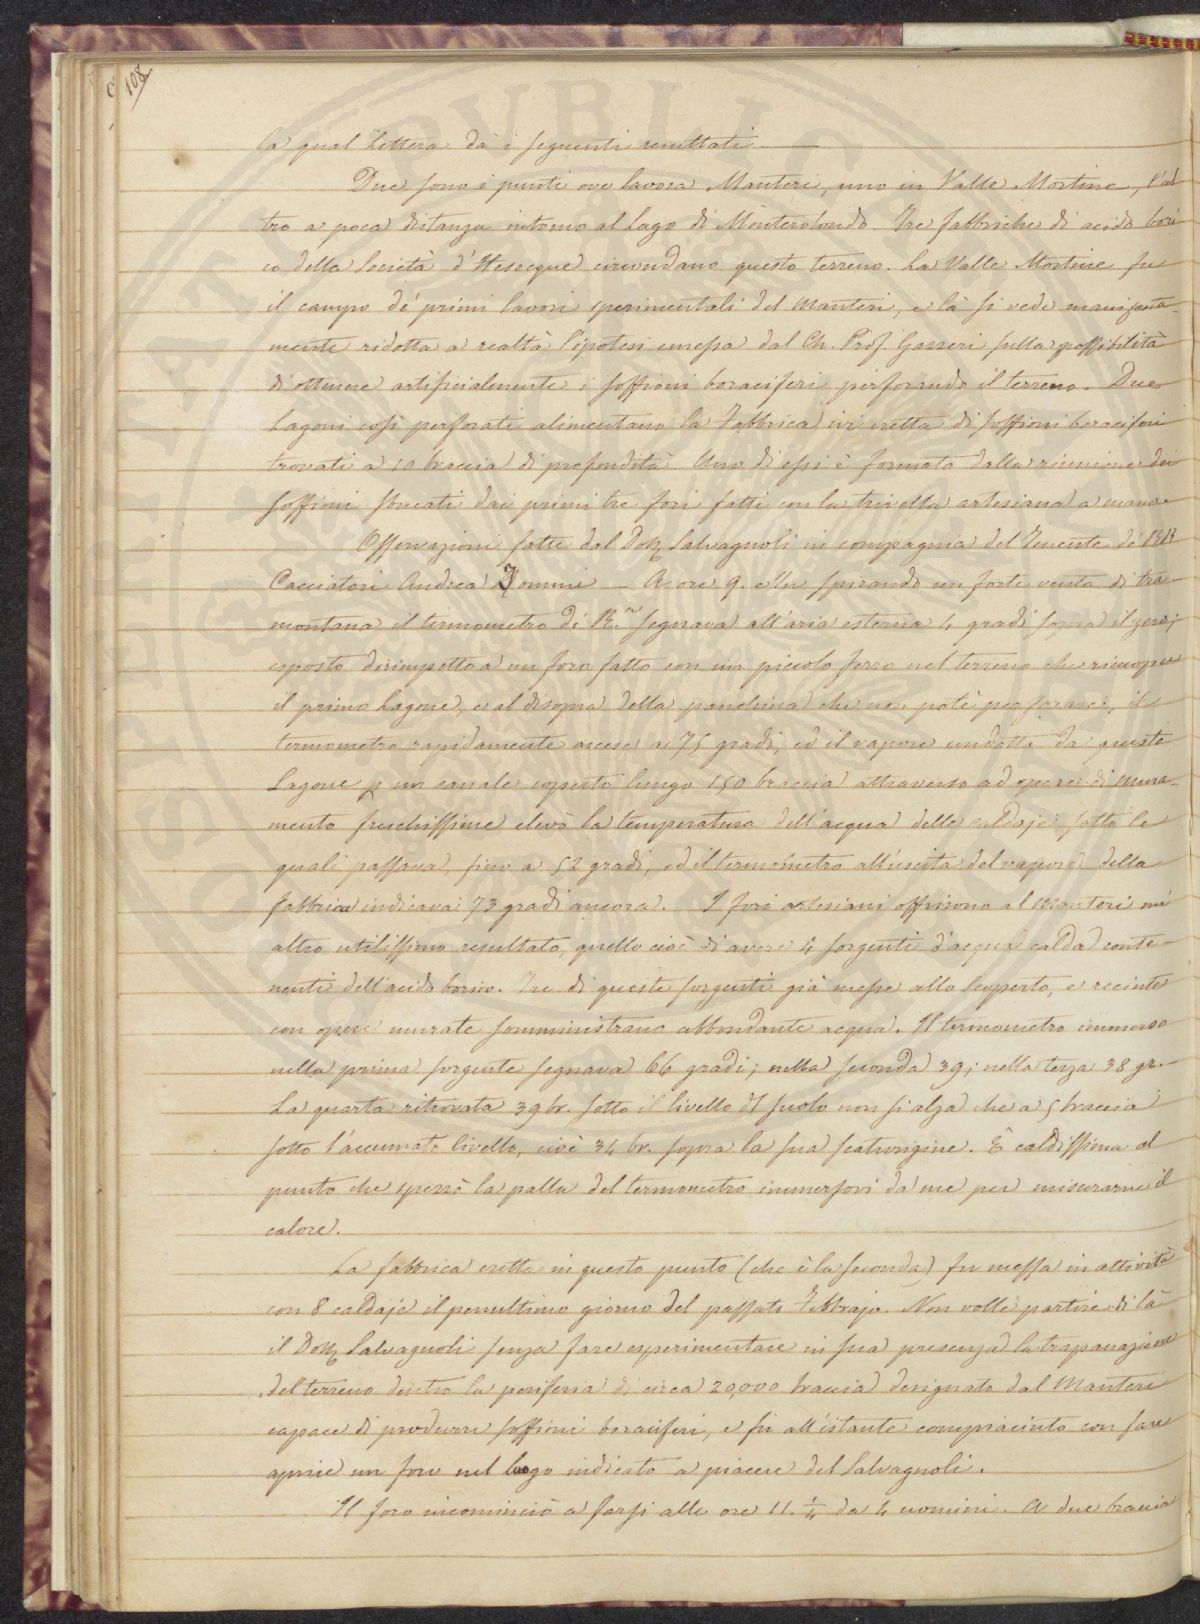 108
la qual Lettera dà i seguenti resultati. —
Due sono i punti ove lavora Manteri, uno in Valle Mortine, l'al
tro a poca distanza intorno al Lago di Monterotondo. Tre fabbriche di acido bori
co della Società d'Hesecque circondano questo terreno. La Valle Mortine fu
il campo de' primi lavori sperimentali del Manteri, e là si vede manifesta-
mente ridotta a realtà l'ipotesi emessa dal Ch. Prof. Gazzeri sulla possibilità
di ottenere artificialmente i soffioni boraciferi perforando il terreno. Due
Lagoni così perforati alimentano la Fabbrica ivi eretta di soffioni boraciferi
trovati a 10 braccia di profondità. Uno di essi è formato dalla riunione dei
soffioni sbucati dai primi tre fori fatti con la trivella artesiana a mano.
Osservazioni fatte dal Dott. Salvagnoli in compagnia del Tenente de' RR
Cacciatori Andrea Tommi — A ore 9. e ½ spirando un forte vento di tra-
montana il termometro di R. segnava all'aria esterna 4 gradi sopra il zero;
esposto dirimpetto a un foro fatto con un piccolo ferro nel terreno che ricuopre
il primo Lagone, e al disopra della panchina che non potè perforarsi, il
termometro rapidamente ascese a 75 gradi, ed il vapore condotto da questo
Lagone p un canale coperto lungo 150 braccia attraverso ad opere di mura-
mento freschissime elevò la temperatura dell'acqua delle caldaje sotto le
quali passava, fino a 52 gradi, ed il termometro all'uscita del vapore della
fabbrica indicava 73 gradi ancora. I fori artesiani offrirono al Manteri un'
altro utilissimo resultato, quello cioè di avere 4 sorgenti d'acqua calda conte-
nenti dell'acido borico. Tre di queste sorgenti già messe allo scoperto, e recinte
con opere murate somministrano abbondante acqua. Il termometro immerso
nella prima sorgente segnava 66 gradi; nella seconda 39; nella terza 38 gr.
La quarta ritrovata 39 br. sotto il livello del suolo non si alza che a 5 braccia
sotto l'accennato livello, cioè 34 br. sopra la sua scaturigine. È caldissima al
punto che spezzò la palla del termometro immersovi da me per misurarne il
calore.
La fabbrica eretta in questo punto (che è la seconda) fu messa in attività
con 8 caldaje il penultimo giorno del passato Febbrajo. Non volle partire di là
il Dott. Salvagnoli senza fare esperimentare in sua presenza la trapanazione
del terreno dentro la periferia di circa 20,000 braccia designato dal Manteri
capace di produrre soffioni boraciferi, e fu all'istante compiaciuto con fare
aprire un foro nel luogo indicato a piacere del Salvagnoli.
Il foro incominciò a farsi alle ore 11. ¼ da 4 uomini. A due braccia